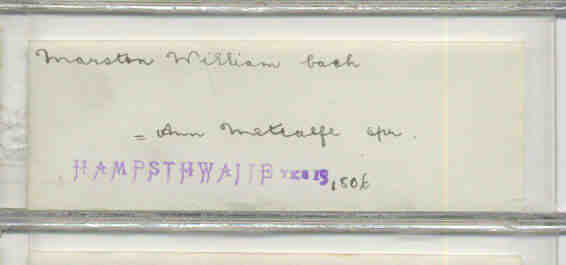 Marston William bach
= Ann Metcalfe spr.
HAMPSTHWAITE